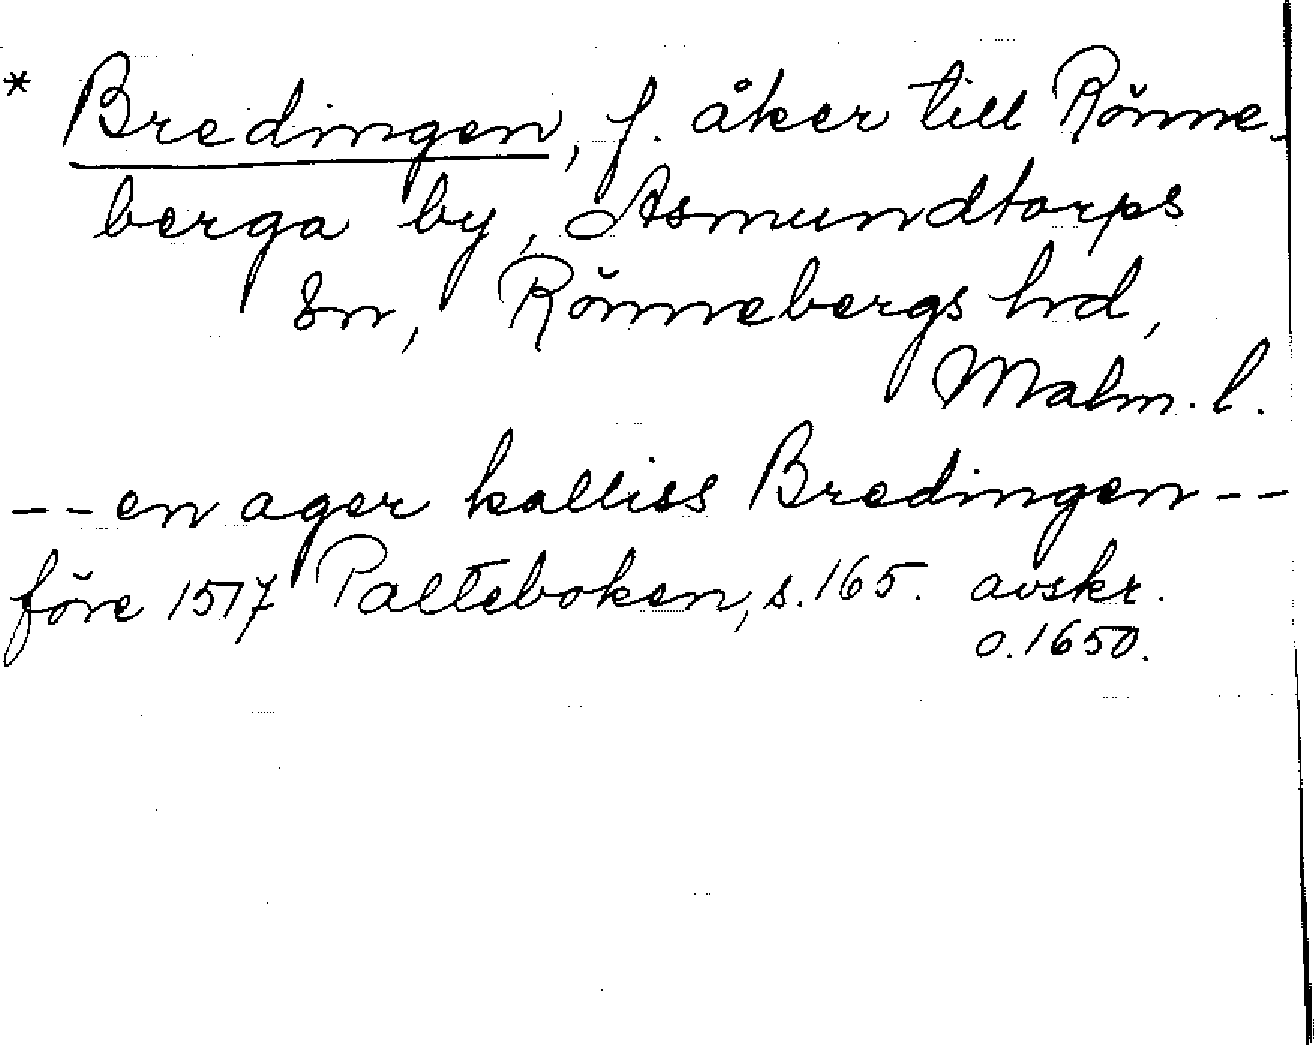 * Bredingen, f. åker till Rönne-
berga by, Asmundtorps
sn, Rönnebergs hd,
Malm. l.
-- en ager kalliss Bredingen --
före 1517 Palteboken, s. 165. avskr.
o. 1650.